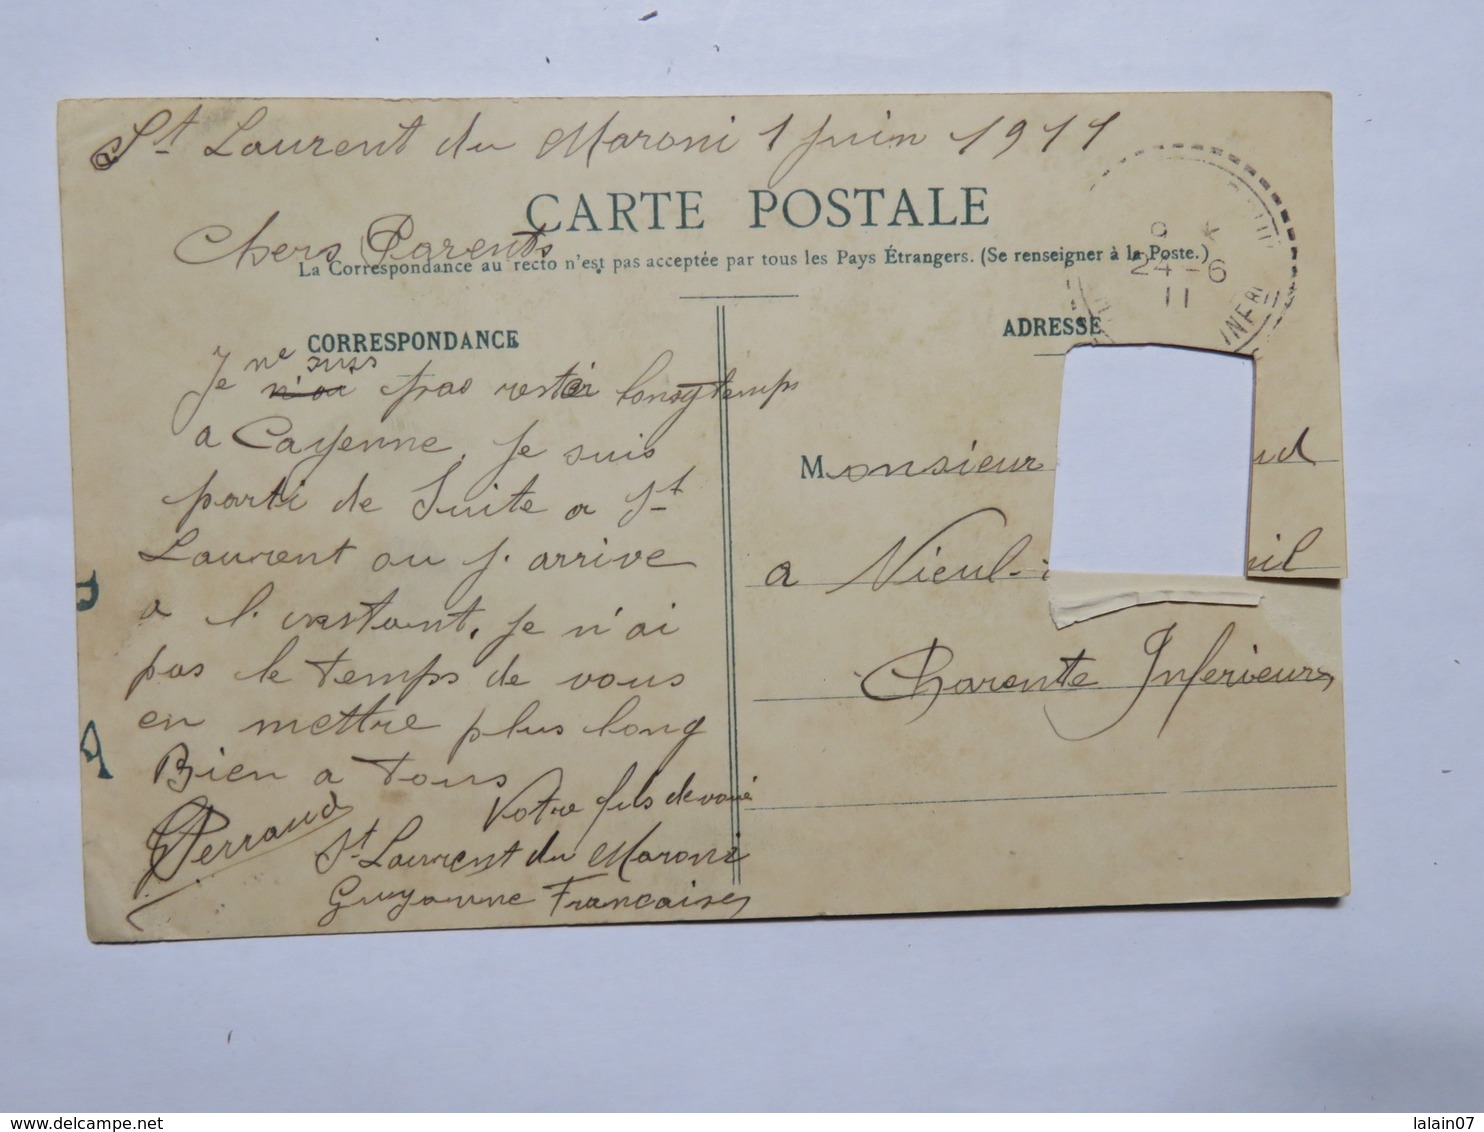 St Laurent du Maroni 1 Juin 1911
CARTE POSTALE
Chers Parents
La Correspondance au recto n'est pas acceptée par tous les Pays Étrangers. (Se renseigner à la Poste.)
24 - 6
11
INFRE
CORRESPONDANCE
ADRESSE
ne suis
Je pas rester longtemps
a Cayenne. Je suis
parti de Suite a St
Laurent ou j. arrive
a l. instant, Je n'ai
pas le temps de vous
en mettre plus long
Bien a tous
Votre fils devoué
Perraud
St Laurent du Maroni
Guyanne Francaise
Monsieur ud
a Nieul- uil
Charente Inferieure
delcampe.net
lalain07